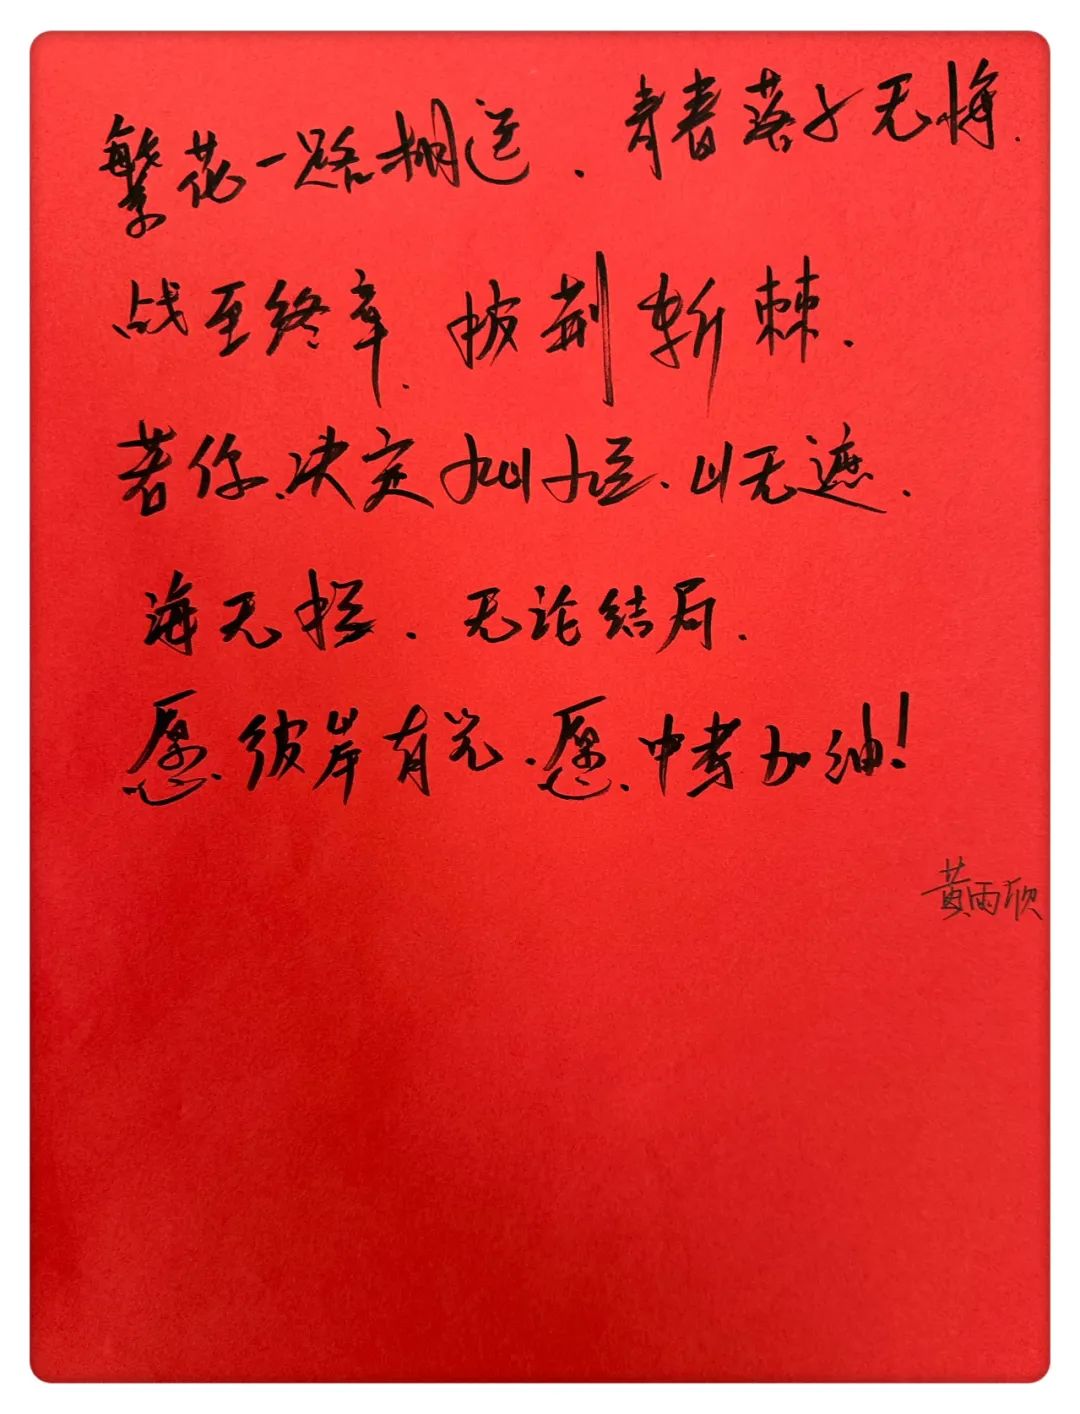 繁花一路相送.青春落子无悔.
战至终章.披荆斩棘.
若你决定灿烂.山无遮.
海无拦.无论结局.
愿彼岸有光.愿中考加油!
黄雨欣